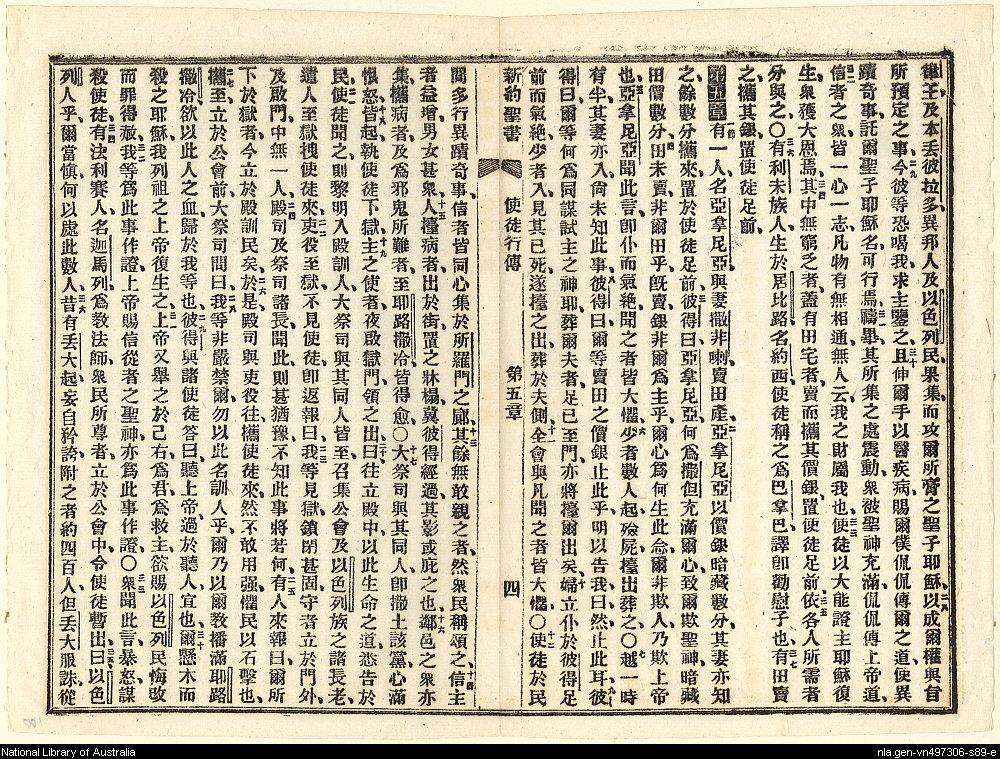 維王及本丟彼拉多異邦人及以色列民果集而攻爾所膏之聖子耶穌以成爾權與旨
所預定之事今彼等恐喝我求主鑒之且伸爾手以醫疾病賜爾僕侃侃傳爾之道使異
蹟奇事託爾聖子耶穌名可行焉禱畢其所集之處震動衆被聖神充滿侃侃傳上帝道
信者之衆皆一心一志凡物有無相通無人云我之財屬我也使徒以大能證主耶穌復
生衆獲大恩焉其中無窮乏者蓋有田宅者賣而攜其價銀置使徒足前依各人所需者
分與之〇有利未族人生於居比路名約西使徒稱之爲巴拿巴譯卽勸慰子也有田賣
之攜其銀置使徒足前
第五章有一人名亞拿尼亞與妻撒非喇賣田產亞拿尼亞以價銀暗藏數分其妻亦知
之餘數分攜來置於使徒足前彼得曰亞拿尼亞何爲撒但充滿爾心致爾欺聖神暗藏
田價數分田未賣非爾田乎旣賣銀非爾爲主乎爾心爲何生此念爾非欺人乃欺上帝
也亞拿尼亞聞此言卽仆而氣絕聞之者皆大懼少者數人起殮屍擡出葬之〇越一時
有半其妻亦入尙未知此事彼得曰爾等賣田之價銀止此乎明以告我曰然止此耳彼
得曰爾等何爲同謀試主之神耶葬爾夫者足已至門亦將擡爾出矣婦立仆於彼得足
前而氣絕少者入見其已死遂擡之出葬於夫側全會與凡聞之者皆大懼〇使徒於民
新約聖書 使徒行傳 第五章 四
間多行異蹟奇事信者皆同心集於所羅門之廊其餘無敢親之者然衆民稱頌之信主
者益增男女甚衆人擡病者出於街置之牀榻冀彼得經過其影或庇之也鄰邑之衆亦
集攜病者及爲邪鬼所難者至耶路撒冷皆得愈〇大祭司與其同人卽撒土該黨心滿
恨怒皆起執使徒下獄主之使者夜啟獄門領之出曰往立殿中以此生命之道悉告於
民使徒聞之則黎明入殿訓人大祭司與其同人皆至召集公會及以色列族之諸長老
遣人至獄拽使徒來吏役至獄不見使徒卽返報曰我等見獄鎖閉甚固守者立於門外
及啟門中無一人殿司及祭司諸長聞此則甚猶豫不知此事將若何有人來報曰爾所
下於獄者今立於殿訓民矣於是殿司與吏役往攜使徒來然不敢用强懼民以石擊也
攜至立於公會前大祭司問曰我等非嚴禁爾勿以此名訓人乎爾乃以爾教播滿耶路
撒冷欲以此人之血歸於我等也彼得與諸使徒答曰聽上帝過於聽人宜也爾懸木而
殺之耶穌我列祖之上帝復生之上帝又舉之於己右爲君爲救主欲賜以色列民悔改
而罪得赦我等爲此事作證上帝賜信從者之聖神亦爲此事作證〇衆聞此言暴怒謀
殺使徒有法利賽人名迦馬列爲教法師衆民所尊者立於公會中令使徒暫出曰以色
列人乎爾當愼何以處此數人昔有丟大起妄自矜誇附之者約四百人但丟大服誅從
National Library of Australia
nla.gen-vn497306-s89-e